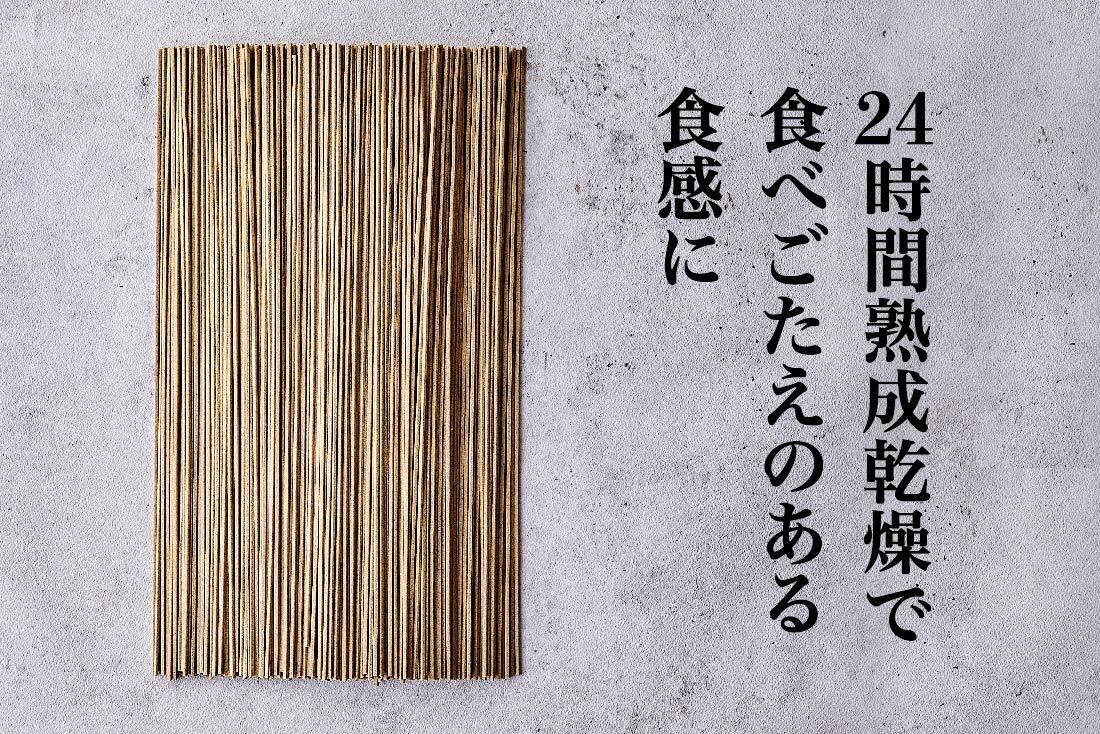 24時間熟成乾燥で
食べごたえのある
食感に